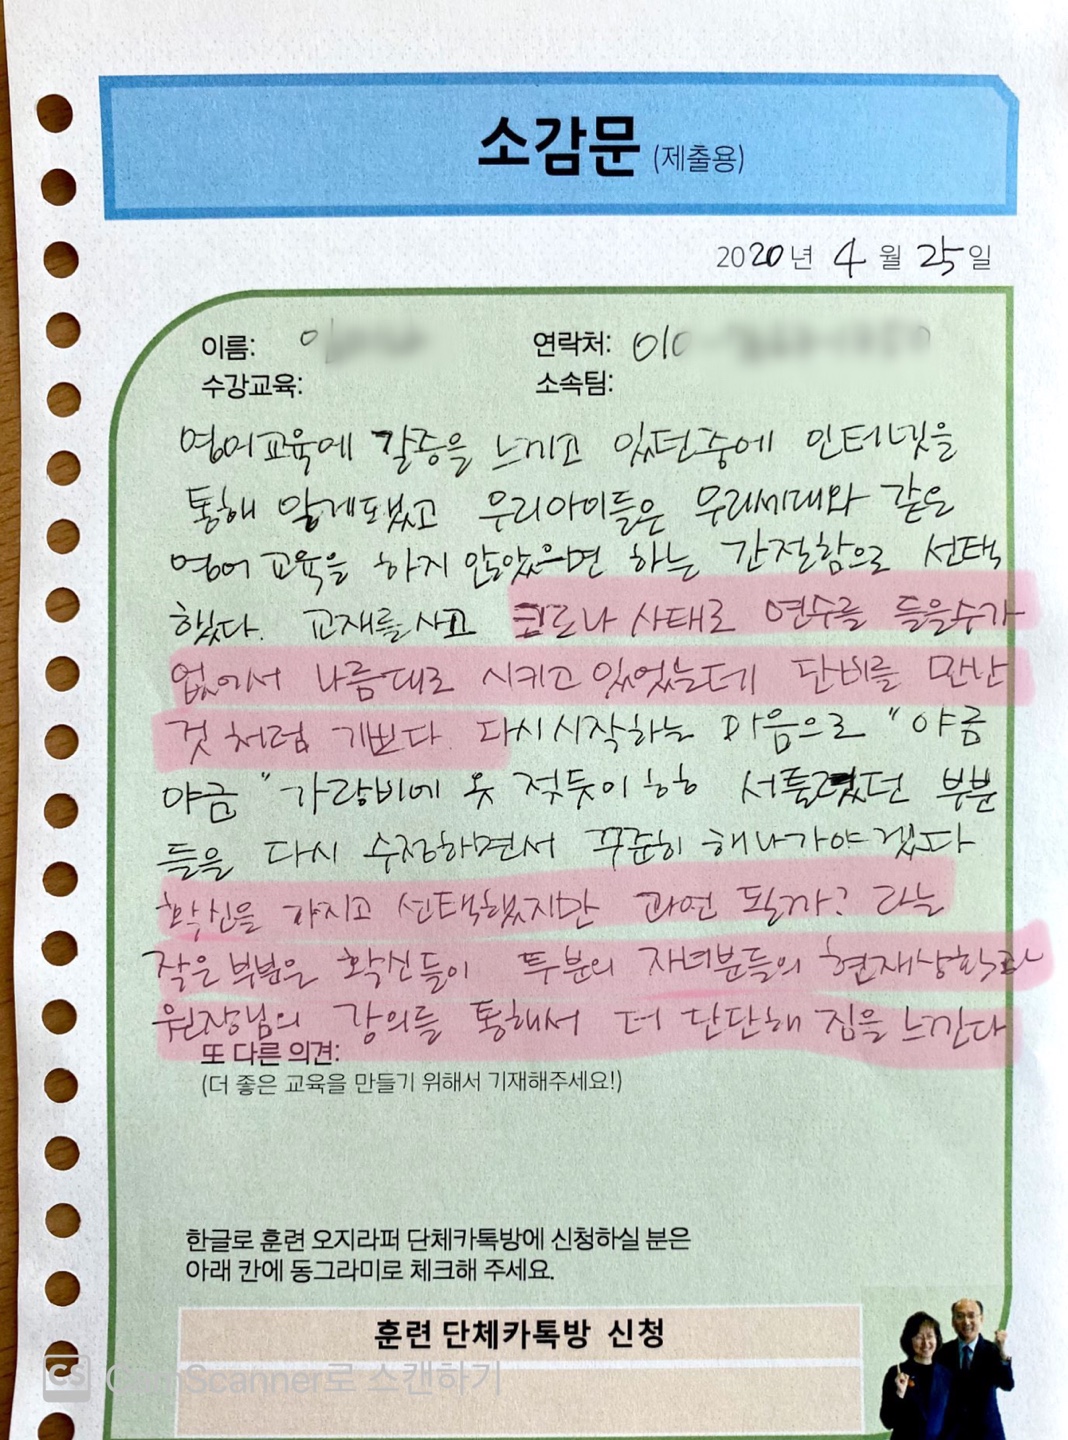 소감문 (제출용)
2020년 4월 25일
이름: 연락처: 010
수강교육: 소속팀:
영어교육에 갈증을 느끼고 있던중에 인터넷을
통해 알게되었고 우리아이들은 우리세대와 같은
영어교육을 하지 않았으면 하는 간절함으로 선택
했다. 교재를 사고 코로나 사태로 연수를 들을수가
없어서 나름대로 시키고 있었는데 단비를 만난
것 처럼 기쁘다. 다시 시작하는 마음으로 "야금
야금" 가랑비에 옷 젖듯이 ㅎㅎ 서툴렀던 부분
들을 다시 수정하면서 꾸준히 해나가야겠다
확신을 가지고 선택했지만 과연 될까? 라는
작은 부분은 확신들이 두분의 자녀분들의 현재상황과
원장님의 강의를 통해서 더 단단해 짐을 느낀다
또 다른 의견:
(더 좋은 교육을 만들기 위해서 기재해주세요!)
한글로 훈련 오지라퍼 단체카톡방에 신청하실 분은
아래 칸에 동그라미로 체크해 주세요.
훈련 단체카톡방 신청
CS CamScanner로 스캔하기